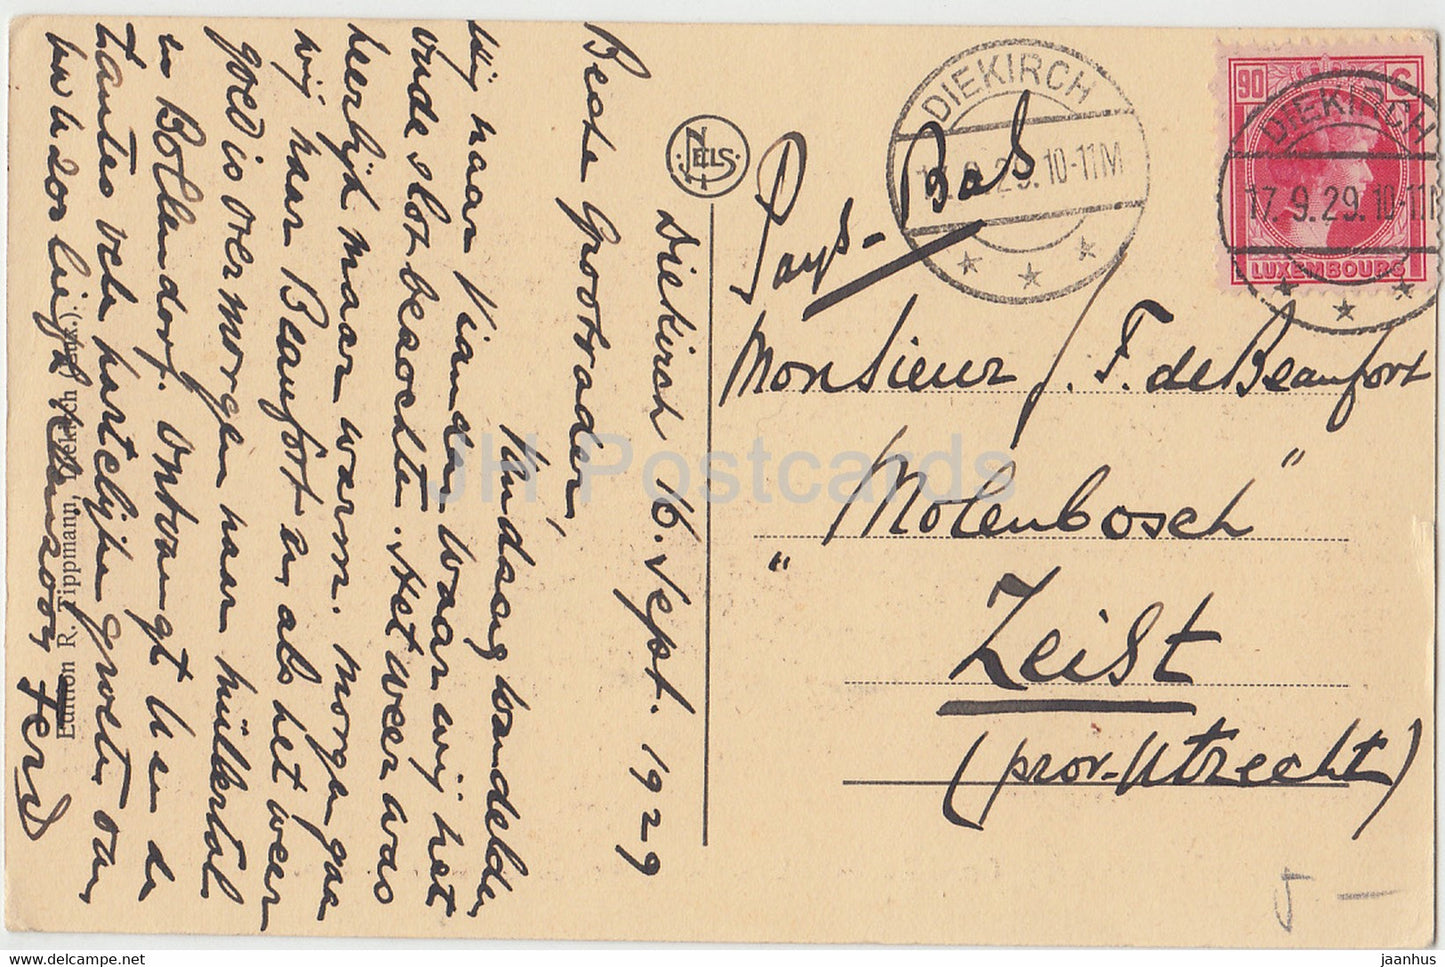 Diekirch 16. Sept. 1929
Beste Grootvader,
Vandaag wandelden
wij naar Vianden waar wij het
oude slot bezochten. Het weer was
heerlijk maar warm. Morgen gaan
wij naar Beaufort en als het weer
goed is overmorgen naar
en Bollendorf. Ontvangt U en de
tantes vele hartelijke groeten van
Uw kleinzoon
Ferd
Edition R. Tippmann, Diekirch (Lux.).
NELS
DIEKIRCH
9.29.10-11M
90 C
LUXEMBOURG
DIEKIRCH
17.9.29.10-11M
Pays-Bas
Monsieur J. F. de Beaufort
"Molenbosch"
Zeist
(prov. Utrecht)
JH Postcards
www.delcampe.net
jaanhus